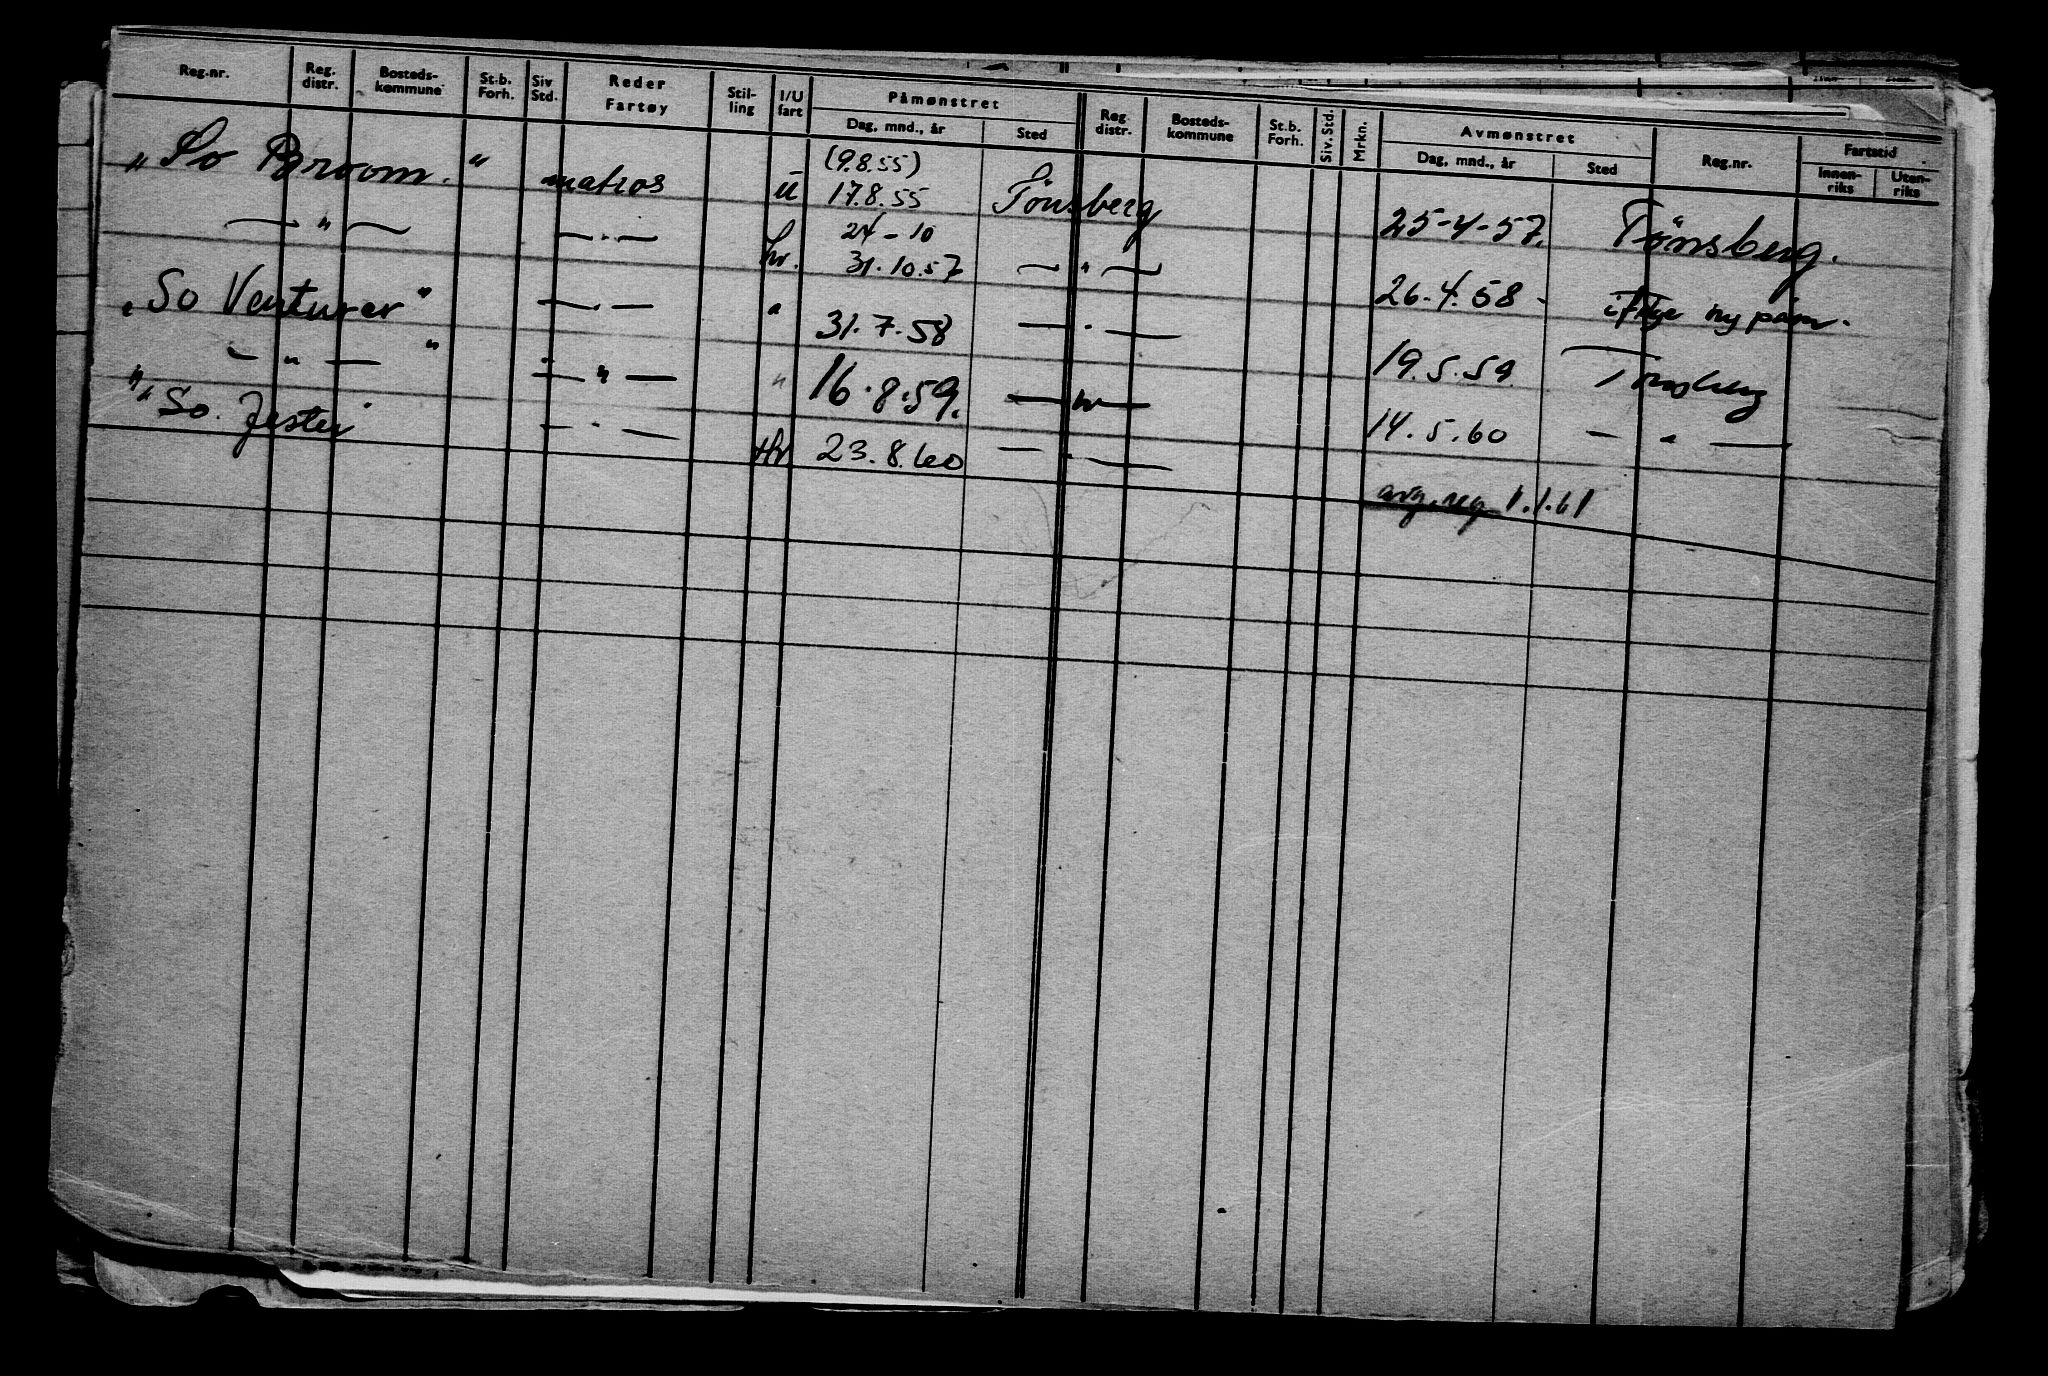 Reg.nr. Reg. distr. Bosteds- kommune St.b. Forh. Siv Std. Reder Fartøy Stil- ling I/U fart Påmønstret Dag, mnd., år Sted Reg. distr. Bosteds- kommune St.b. Forh. Siv. Std. Mrkn. Avmønstret Dag, mnd., år Sted Reg.nr. Fartstid Innen- riks Uten- riks
(9.8.55)
„ So Broom. " matros ü 17.8.55 Tönsberg 25-4-57. Tönsberg.
24-10
— " — — " — hv. 31.10.57 — " — 26.4.58 - ifølge ny påm.
„ So Venturer " — " — " 31.7.58 — " — 19.5.59 Tønsberg
— " — " — " — " 16.8.59. — " — 14.5.60 — " —
" So. Jester " — " — Hv 23.8.60 — " —
avg. reg 1.1.61